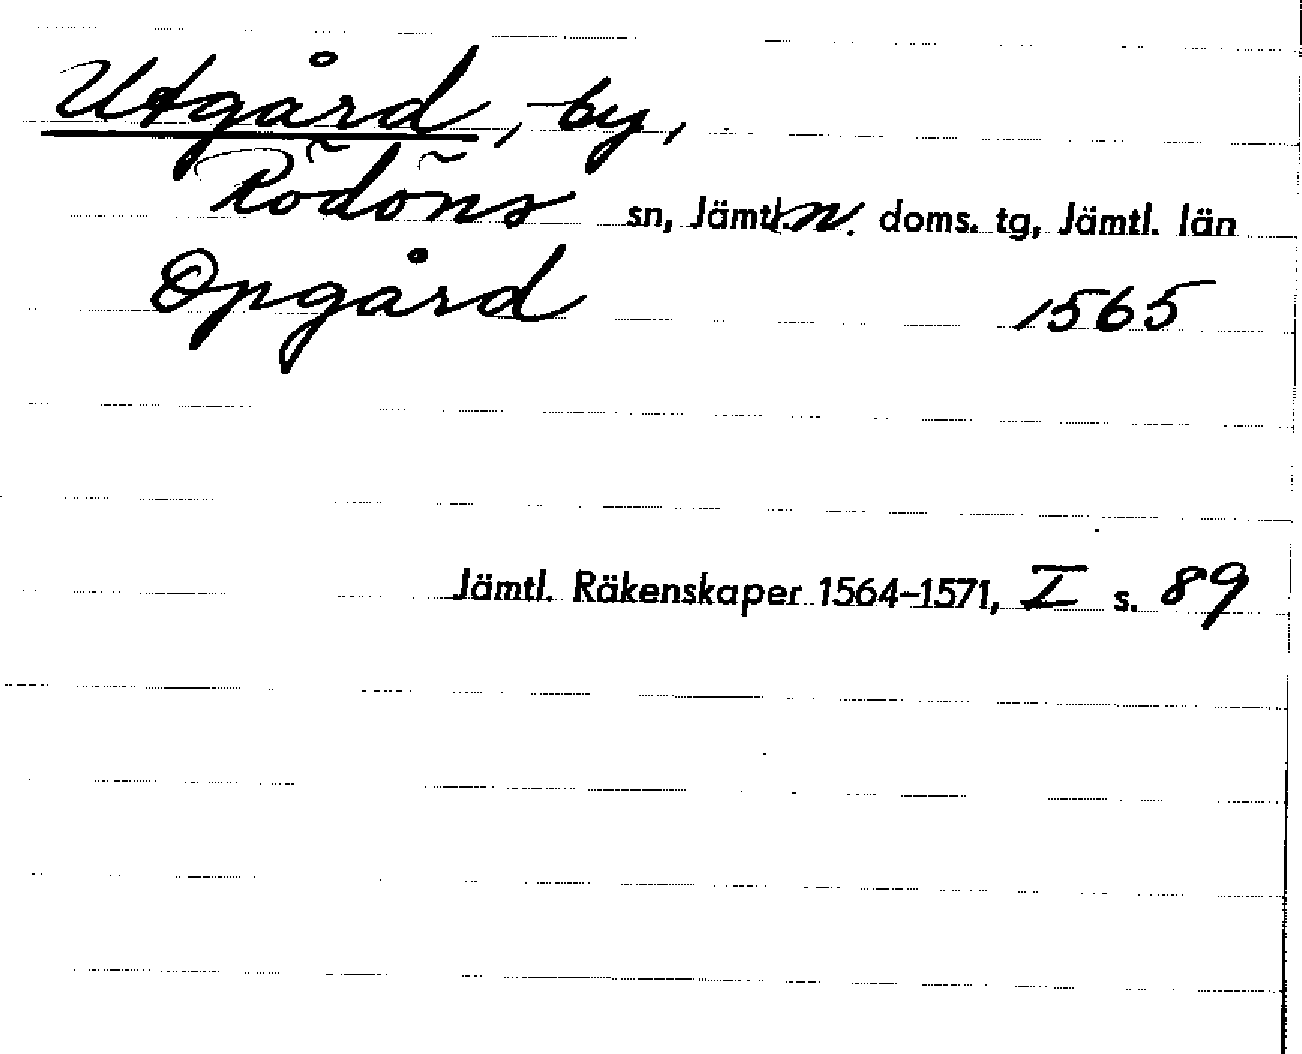 Utgård, by,
Rödöns sn, Jämtl. n. doms. tg, Jämtl. län
Opgård 1565
Jämtl. Räkenskaper 1564-1571, I s. 89